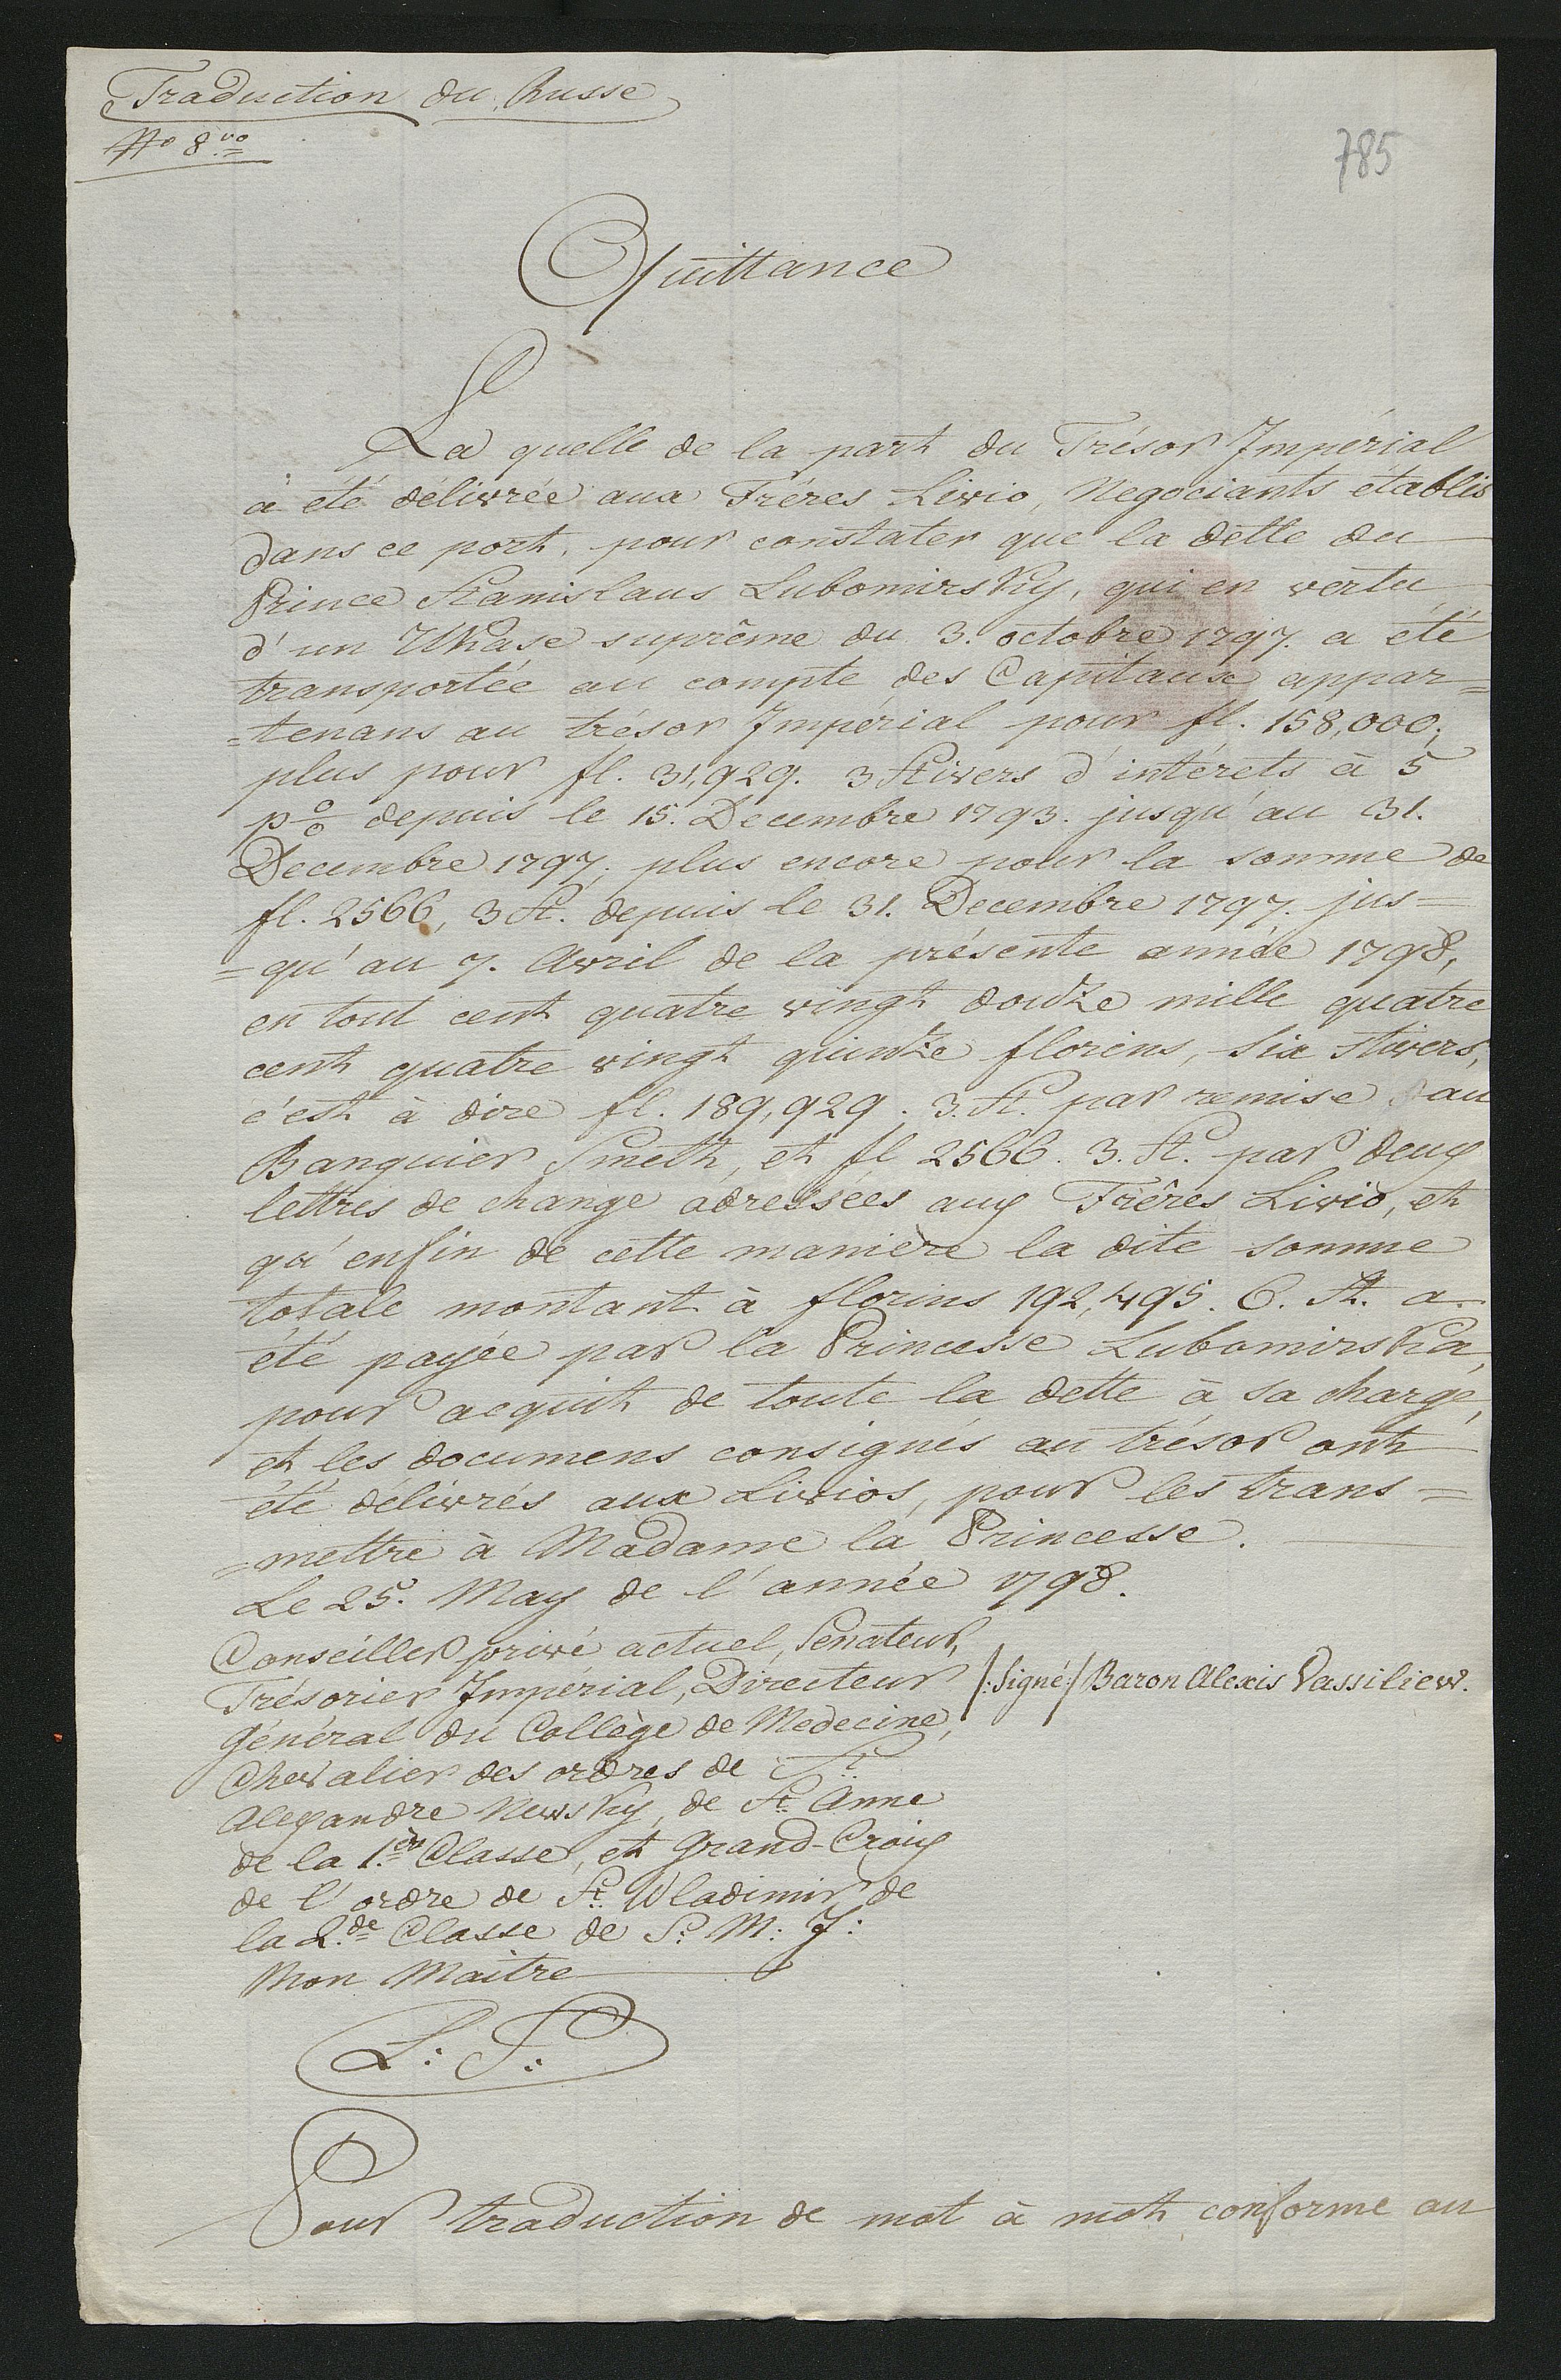 Traduction du Russe
No 8vo
785
Quittance
La quelle de la part du Trésor Impérial
à été délivrée aux Fréres Livio, Negociants établis
dans ce port, pour constater que la dette du
Prince Stanislaus Lubomirsky, qui en vertu
d'un Ukase suprême du 3. octobre 1797. a été
transportée au compte des Capitaux appar=
=tenans au trésor Impérial pour fl. 158,000;
plus pour fl. 31,929. 3 Stivers d'intérets à 5
p% depuis le 15. Decembre 1793. jusqu'au 31.
Decembre 1797; plus encore pour la somme de
fl. 2566, 3 St. depuis le 31. Decembre 1797. jus=
=qu'au 7. Avril de la présente année 1798,
en tout cent quatre vingt douze mille quatre
cent quatre vingt quinze florins, six stivers,
c'est à dire fl. 189,929. 3. St. par remise au
Banquier Smeth, et fl 2566. 3. St. par deux
lettres de change adressées aux Frêres Livio, et
qu'enfin de cette manière la dite somme
totale montant à florins 192,495. 6. St. a
été payée par la Princesse Lubomirska,
pour acquit de toute la dette à sa charge,
et les documens consignés au trésor ont
été délivrés aux Livios, pour les trans=
=mettre à Madame la Princesse.
Le 25. May de l'année 1798.
Conseiller privé actuel, Senateur,
Trésorier Impérial, Directeur /:Signé:/ Baron Alexis Vassiliew.
Général du Collège de Medecine,
Chevalier des ordres de St.
Alexandre Newsky, de St. Anne
de la 1.ère Classe, et Grand-Croix
de l'ordre de St. Wladimir de
la 2.de Classe de S: M: I:
Mon Maitre
L: S:
Pour traduction de mot à mot conforme au